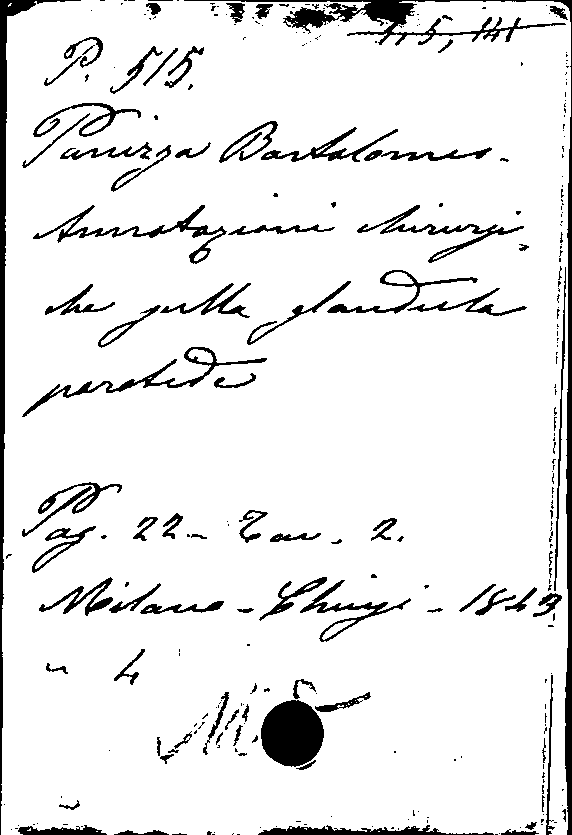 4, 5, 141
P. 515.
Panizza Bartolomeo.
Annotazioni chirurgi-
che sulla glandula
parotide
Pag. 22 - Tav. 2.
Milano - Chiusi - 1843
in 4